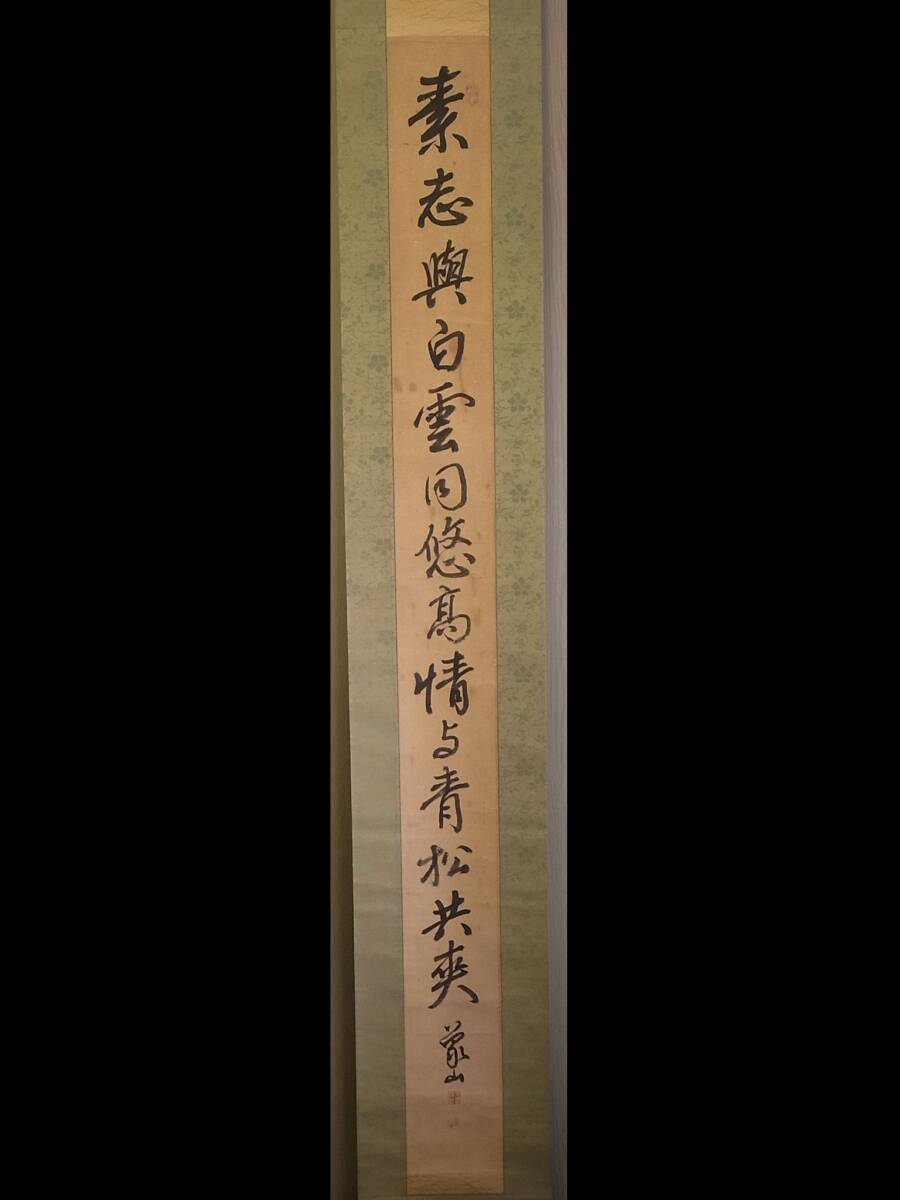 素志與白雲同悠高情与青松共爽
蒙山